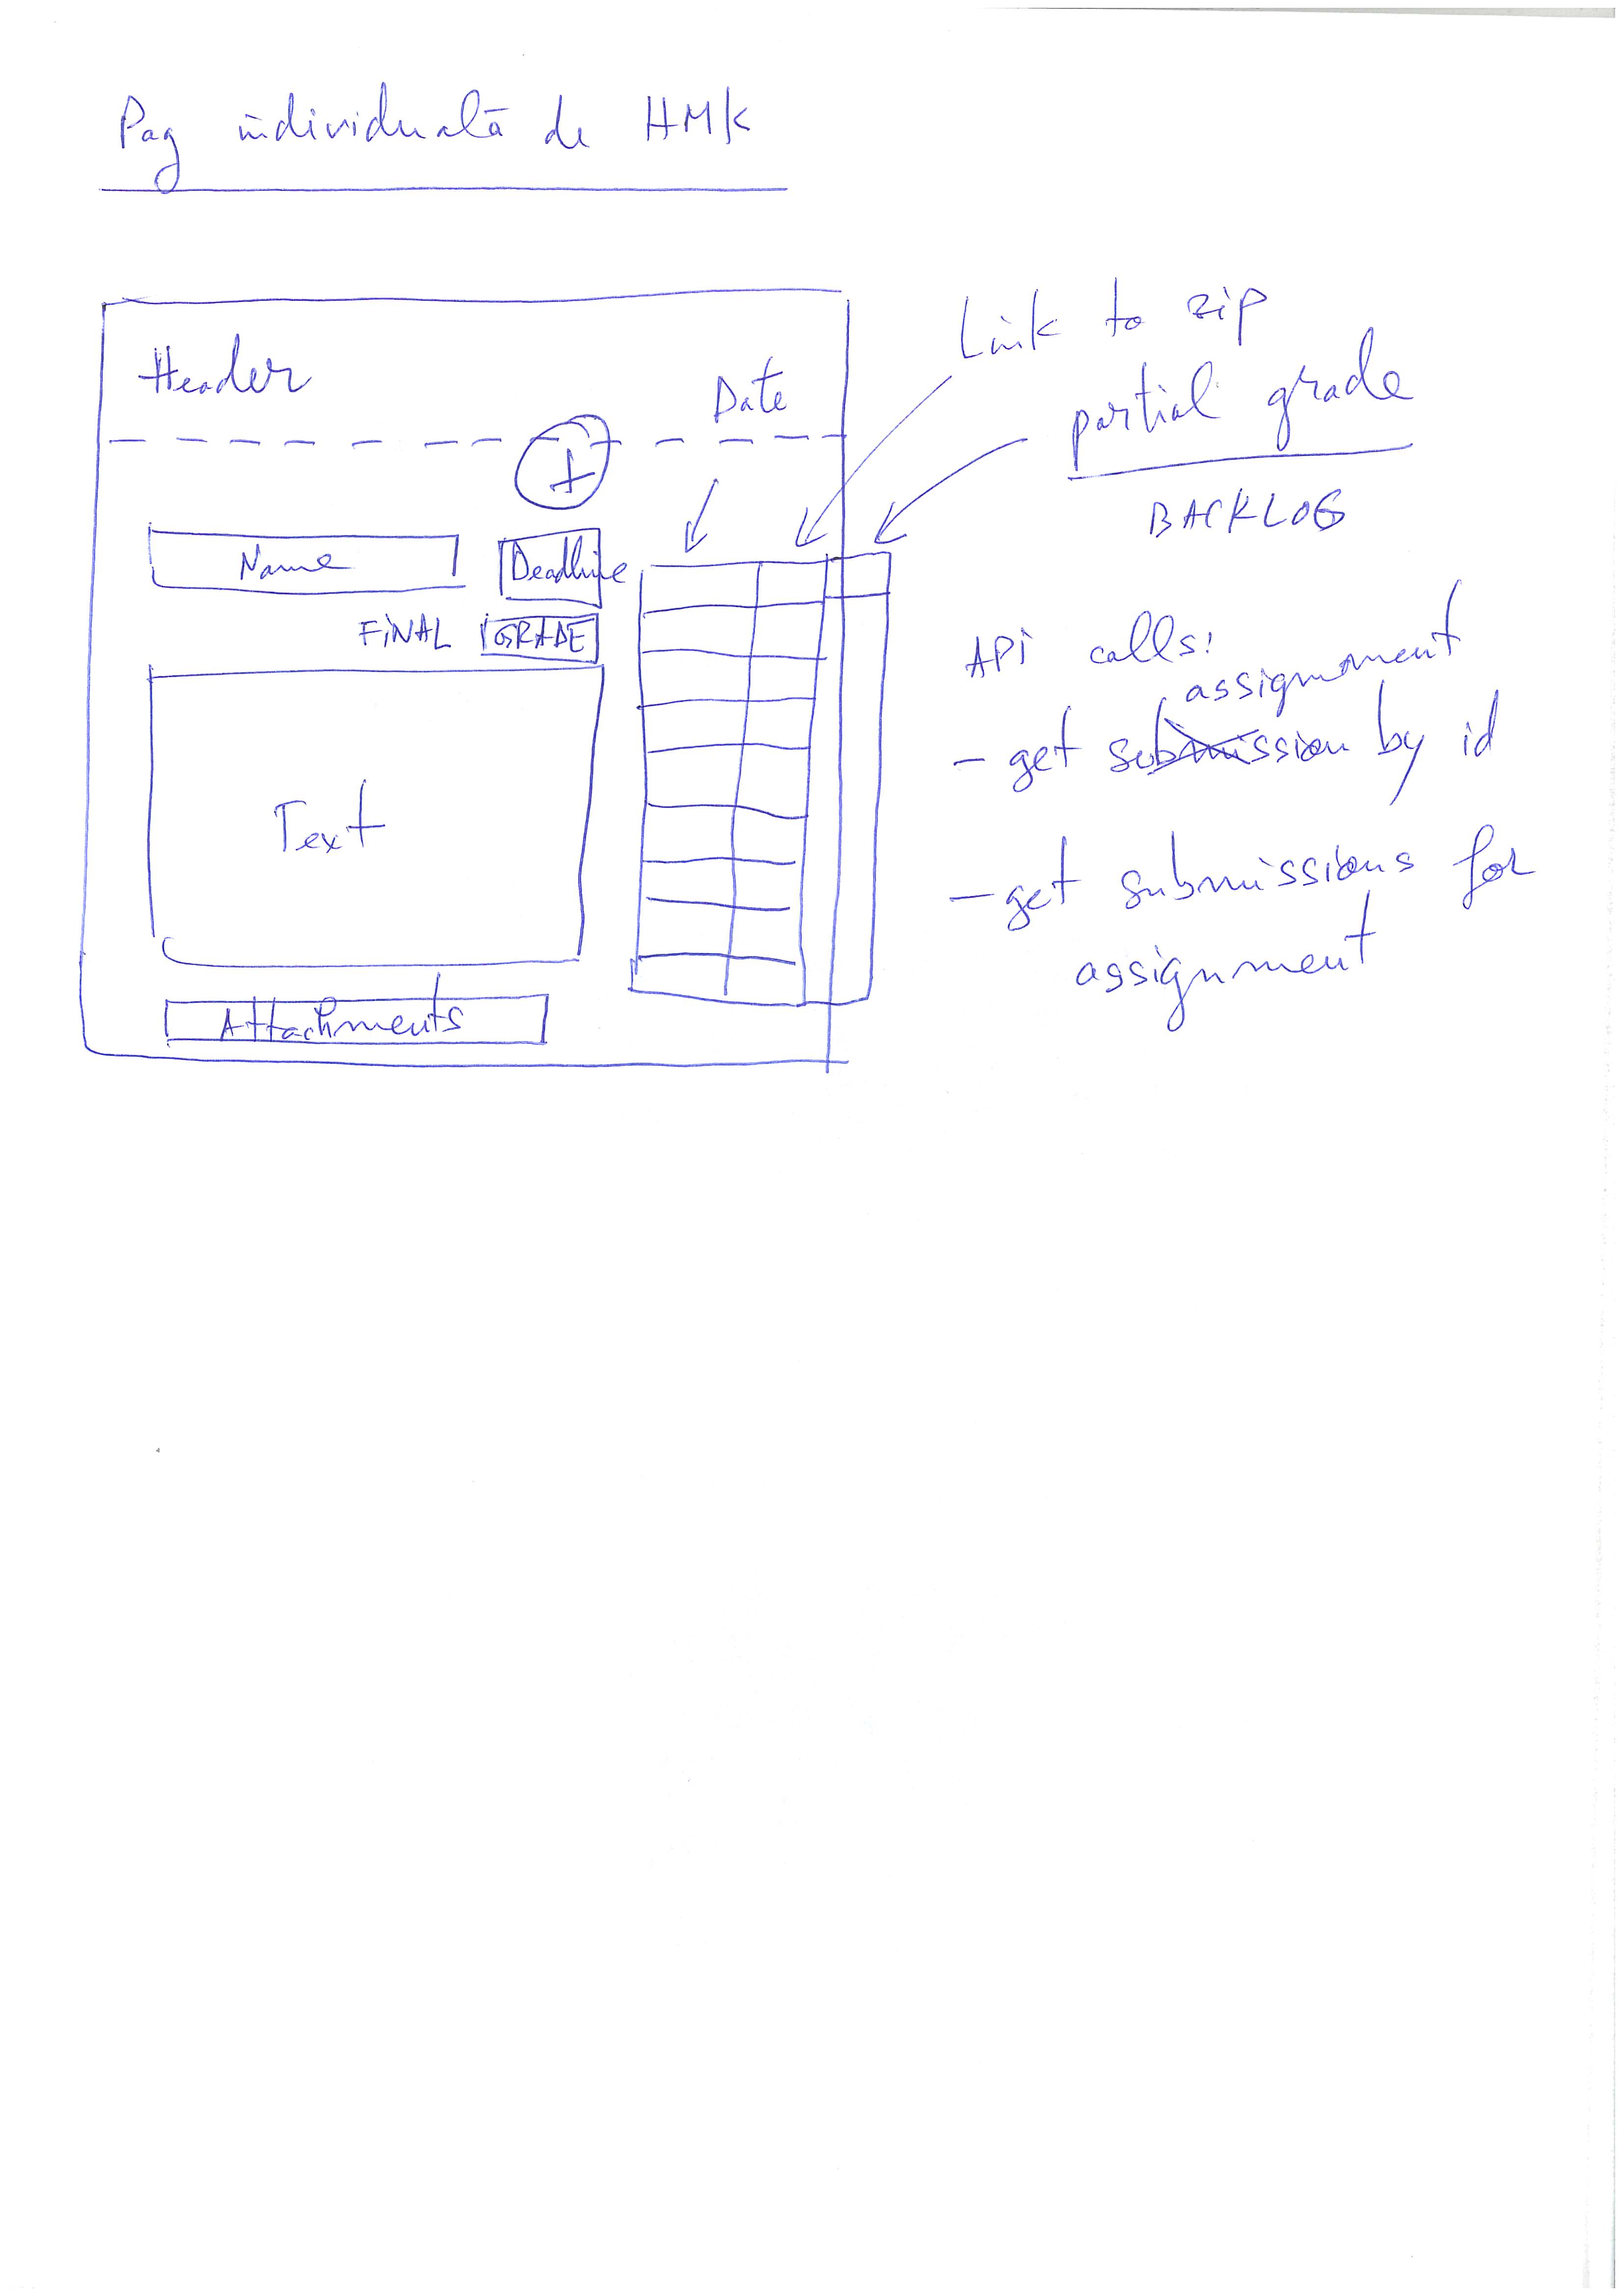 Pag individuală de HMK
Header
Date
+
Name
Deadline
FINAL GRADE
Text
Attachments
Link to zip
partial grade
BACKLOG
API calls:
assignment
- get submission by id
- get submissions for
assignment